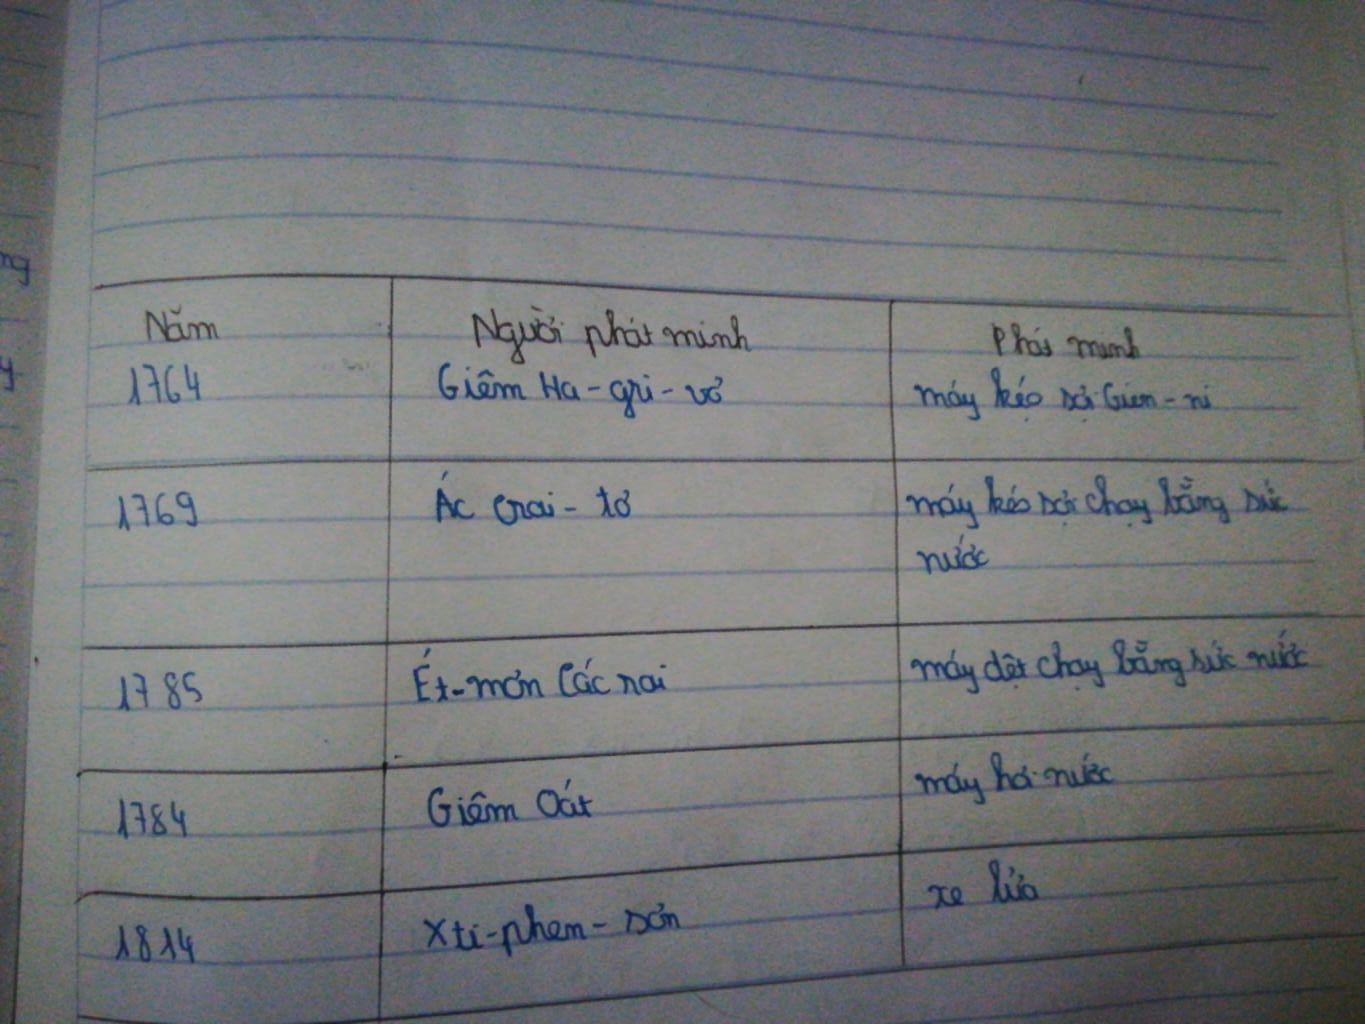 ng
y
Năm Người phát minh Phát minh
1764 Giêm Ha-gri-vơ máy kéo sợi Gien-ni
1769 Ác crai-tơ máy kéo sợi chạy bằng sức
nước
1785 Ét-mơn Các rai máy dệt chạy bằng sức nước
1784 Giêm Oát máy hơi nước
1814 Xti-phen-sơn xe lửa